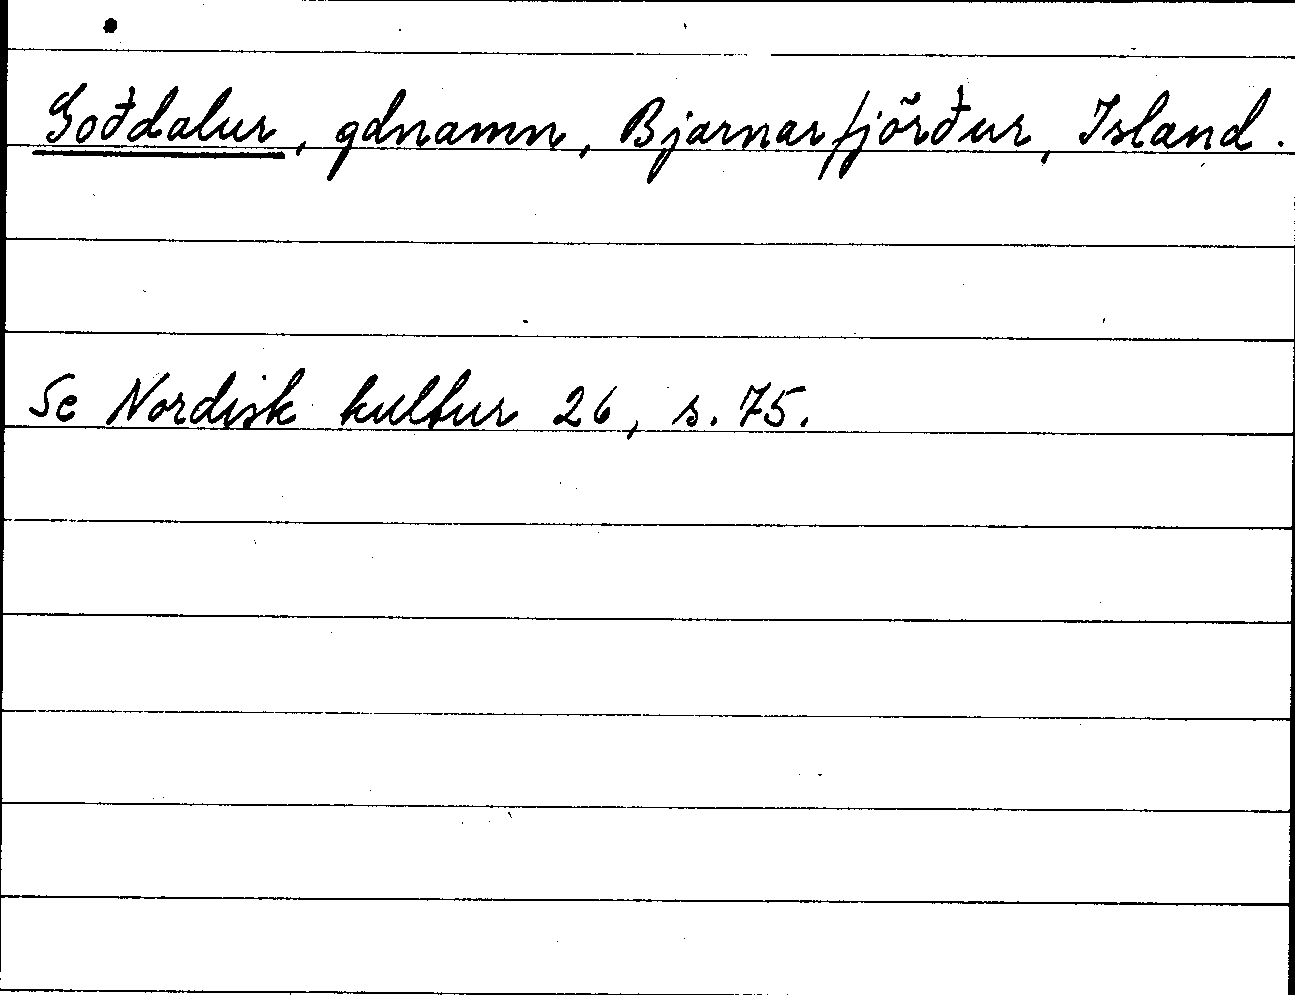 Goðdalur, gdnamn, Bjarnarfjörður, Island.
Se Nordisk kultur 26, s. 75.